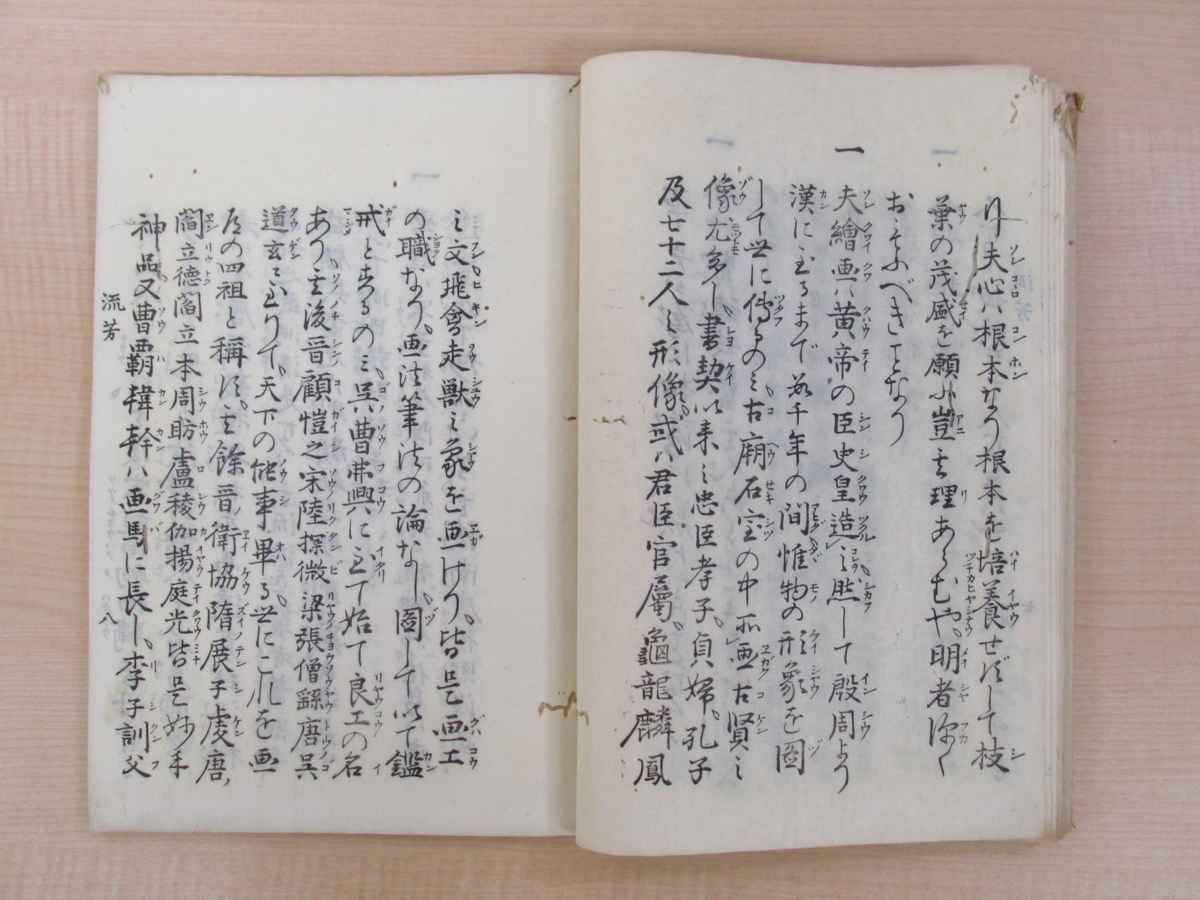 り夫心ハ根本なり根本を培養せずして枝
葉の茂盛を願ハ豈其理あらむや明者深く
おもふべきことなり
一
夫繪画ハ黄帝の臣史皇造之然して殷周より
漢に至るまで数千年の間惟物の形象を圖
して世に傳るのミ古廟石室の中所画古賢之
像尤多し書契以来之忠臣孝子貞婦孔子
及七十二人之形像或ハ君臣官屬龜龍麟鳳
之文飛禽走獣之象を画けり皆是画工
の職なり画法筆法の論なし圖して以て鑑
戒と為るのミ呉曹弗興に至て始て良工の名
あり其後晋顧愷之宋陸探微梁張僧繇唐呉
道玄に至りて天下の能事畢る世にこれを画
道の四祖と稱す其餘晋衛協隋展子虔唐
閻立徳閻立本周昉盧稜伽楊庭光皆是妙手
神品又曹覇韓幹ハ画馬に長し李子訓父
流芳
八